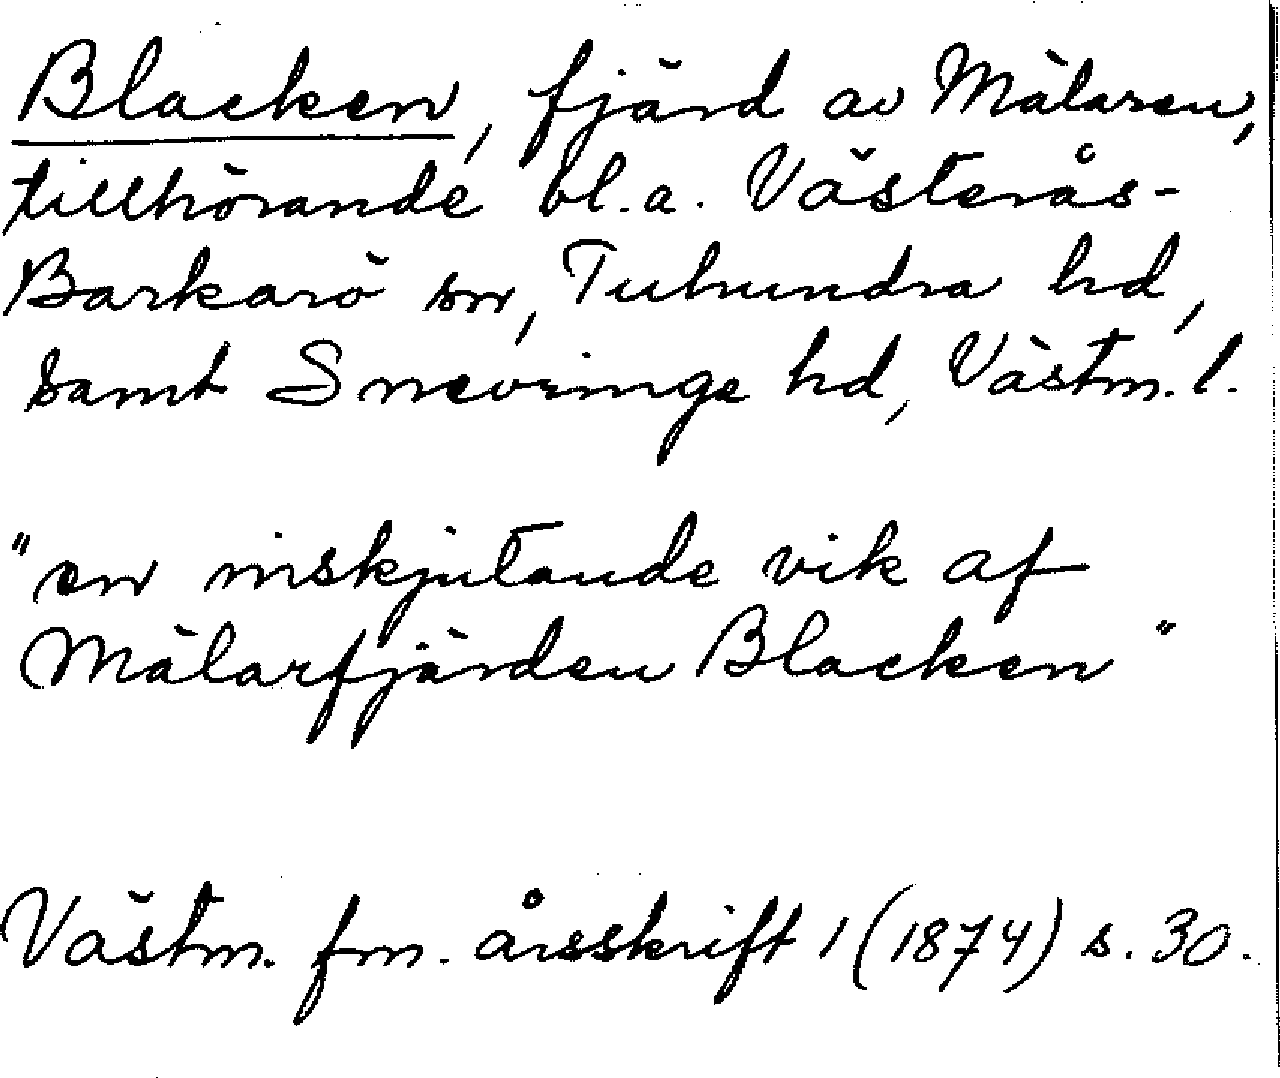 Blacken, fjärd av Mälaren,
tillhörande bl.a. Västerås-
Barkarö sn, Tuhundra hd,
samt Snevringe hd, Västm. l.
"en inskjutande vik af
Mälarfjärden Blacken"
Västm. fm. årsskrift 1 (1874) s. 30.